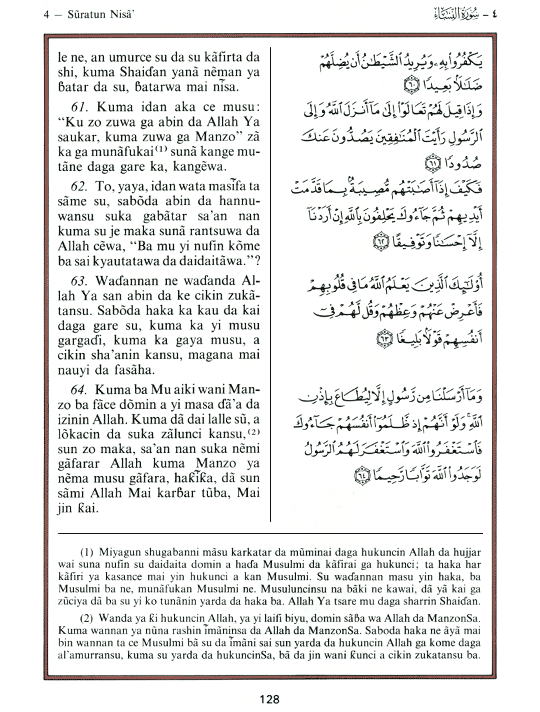 4 — Sūratun Nisā'
٤ - سُورَةُ النِّسَاء
le ne, an umurce su da su kāfirta da
shi, kuma Shaiɗan yanā nēman ya
ɓatar da su, ɓatarwa mai nīsa.
61. Kuma idan aka ce musu:
"Ku zo zuwa ga abin da Allah Ya
saukar, kuma zuwa ga Manzo" zā
ka ga munāfukai(1) sunā kange mu-
tāne daga gare ka, kangēwa.
62. To, yaya, idan wata masīfa ta
sāme su, sabōda abin da hannu-
wansu suka gabātar sa'an nan
kuma su je maka sunā rantsuwa da
Allah cēwa, "Ba mu yi nufin kōme
ba sai kyautatawa da daidaitāwa."?
63. Waɗannan ne waɗanda Al-
lah Ya san abin da ke cikin zukā-
tansu. Sabōda haka ka kau da kai
daga gare su, kuma ka yi musu
gargaɗi, kuma ka gaya musu, a
cikin sha'anin kansu, magana mai
nauyi da fasāha.
64. Kuma ba Mu aiki wani Man-
zo ba fāce dōmin a yi masa ɗā'a da
izinin Allah. Kuma dā dai lalle sū, a
lōkacin da suka zālunci kansu,(2)
sun zo maka, sa'an nan suka nēmi
gāfarar Allah kuma Manzo ya
nēma musu gāfara, haƙīƙa, dā sun
sāmi Allah Mai karɓar tūba, Mai
jin ƙai.
يَكْفُرُوا بِهِ وَيُرِيدُ الشَّيْطَانُ أَن يُضِلَّهُمْ
ضَلَالًا بَعِيدًا ٦٠
وَإِذَا قِيلَ لَهُمْ تَعَالَوْا إِلَىٰ مَا أَنزَلَ اللَّهُ وَإِلَى
الرَّسُولِ رَأَيْتَ الْمُنَافِقِينَ يَصُدُّونَ عَنكَ
صُدُودًا ٦١
فَكَيْفَ إِذَا أَصَابَتْهُم مُّصِيبَةٌ بِمَا قَدَّمَتْ
أَيْدِيهِمْ ثُمَّ جَاءُوكَ يَحْلِفُونَ بِاللَّهِ إِنْ أَرَدْنَا
إِلَّا إِحْسَانًا وَتَوْفِيقًا ٦٢
أُولَٰئِكَ الَّذِينَ يَعْلَمُ اللَّهُ مَا فِي قُلُوبِهِمْ
فَأَعْرِضْ عَنْهُمْ وَعِظْهُمْ وَقُل لَّهُمْ فِي
أَنفُسِهِمْ قَوْلًا بَلِيغًا ٦٣
وَمَا أَرْسَلْنَا مِن رَّسُولٍ إِلَّا لِيُطَاعَ بِإِذْنِ
اللَّهِ وَلَوْ أَنَّهُمْ إِذ ظَّلَمُوا أَنفُسَهُمْ جَاءُوكَ
فَاسْتَغْفَرُوا اللَّهَ وَاسْتَغْفَرَ لَهُمُ الرَّسُولُ
لَوَجَدُوا اللَّهَ تَوَّابًا رَّحِيمًا ٦٤
(1) Miyagun shugabanni māsu karkatar da mūminai daga hukuncin Allah da hujjar
wai suna nufin su daidaita domin a haɗa Musulmi da kāfirai ga hukunci; ta haka har
kāfiri ya kasance mai yin hukunci a kan Musulmi. Su waɗannan masu yin haka, ba
Musulmi ba ne, munāfukan Musulmi ne. Musuluncinsu na bāki ne kawai, dā yā kai ga
zūciya dā ba su yi ko tunānin yarda da haka ba. Allah Ya tsare mu daga sharrin Shaiɗan.
(2) Wanda ya ƙi hukuncin Allah, ya yi laifi biyu, domin sāɓa wa Allah da ManzonSa.
Kuma wannan ya nūna rashin īmāninsa da Allah da ManzonSa. Saboda haka ne āyā mai
bin wannan ta ce Musulmi bā su da īmāni sai sun yarda da hukuncin Allah ga kome daga
al'amurransu, kuma su yarda da hukuncinSa, bā da jin wani ƙunci a cikin zukatansu ba.
128